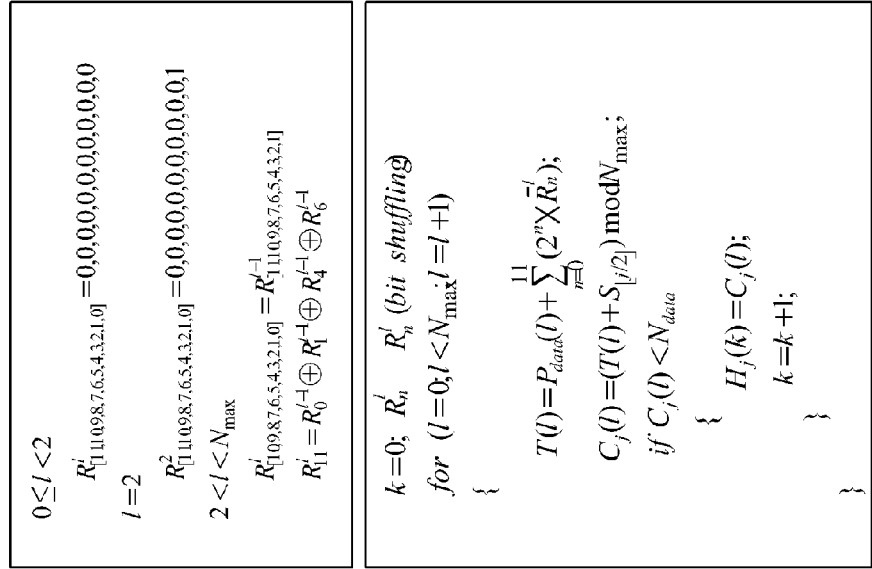 0≤l<2
R^l_[11,10,9,8,7,6,5,4,3,2,1,0]=0,0,0,0,0,0,0,0,0,0,0,0
l=2
R^2_[11,10,9,8,7,6,5,4,3,2,1,0]=0,0,0,0,0,0,0,0,0,0,0,1
2<l<N_max
R^l_[10,9,8,7,6,5,4,3,2,1,0]=R^{l-1}_[11,10,9,8,7,6,5,4,3,2,1]
R^l_11=R^{l-1}_0⊕R^{l-1}_1⊕R^{l-1}_4⊕R^{l-1}_6
k=0; R^l_n R^l_n (bit shuffling)
for (l=0;l<N_max;l=l+1)
{
T(l)=P_data(l)+∑_{n=0}^{11}(2^n×R̄^l_n);
C_j(l)=(T(l)+S_⌊j/2⌋)modN_max;
if C_j(l)<N_data
{
H_j(k)=C_j(l);
k=k+1;
}
}